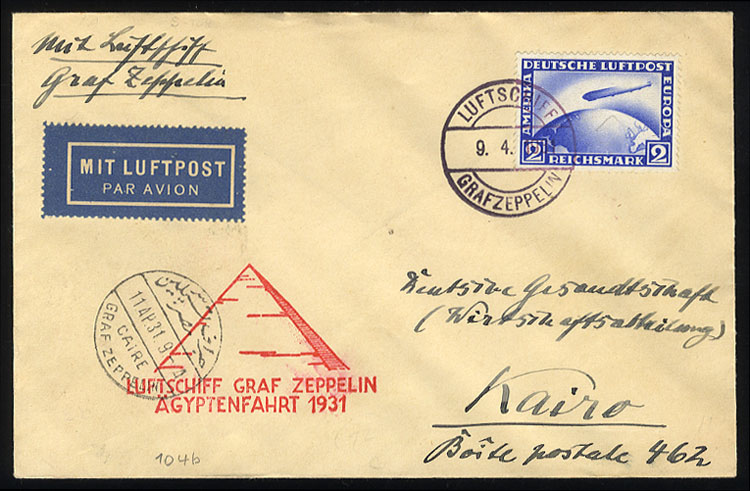 Mit Luftschiff
Graf Zeppelin
MIT LUFTPOST
PAR AVION
LUFTSCHIFF
9. 4.
GRAF ZEPPELIN
DEUTSCHE LUFTPOST
AMERIKA
EUROPA
2 REICHSMARK 2
Deutsche Gesandtschaft
(Wirtschaftsabteilung)
Kairo
Boîte postale 462
11 AP.31.9
CAIRE
GRAF ZEPPELIN
LUFTSCHIFF GRAF ZEPPELIN
ÄGYPTENFAHRT 1931
104b